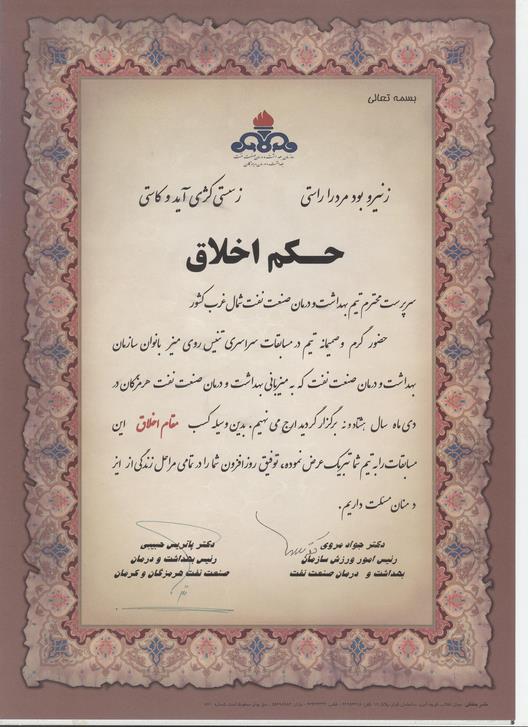 بسمه تعالی
سازمان بهداشت و درمان صنعت نفت
بهداشت و درمان هرمزگان
ز نیرو بود مرد را راستی ز سستی کژی آید و کاستی
حکم اخلاق
سرپرست محترم تیم بهداشت و درمان صنعت نفت شمالغرب کشور
حضور گرم و صمیمانه تیم در مسابقات سراسری تنیس روی میز بانوان سازمان
بهداشت و درمان صنعت نفت که به میزبانی بهداشت و درمان صنعت نفت هرمزگان در
دی ماه سال هشتاد و نه برگزار گردید ارج می نهیم. بدین وسیله کسب مقام اخلاق این
مسابقات را به تیم شما تبریک عرض نموده، توفیق روزافزون شما را در تمامی مراحل زندگی از ایز
د منان مسئلت داریم.
دکتر جواد مروی
رئیس امور ورزش سازمان
بهداشت و درمان صنعت نفت
دکتر پاتریس حبیبی
رئیس بهداشت و درمان
صنعت نفت هرمزگان و کرمان